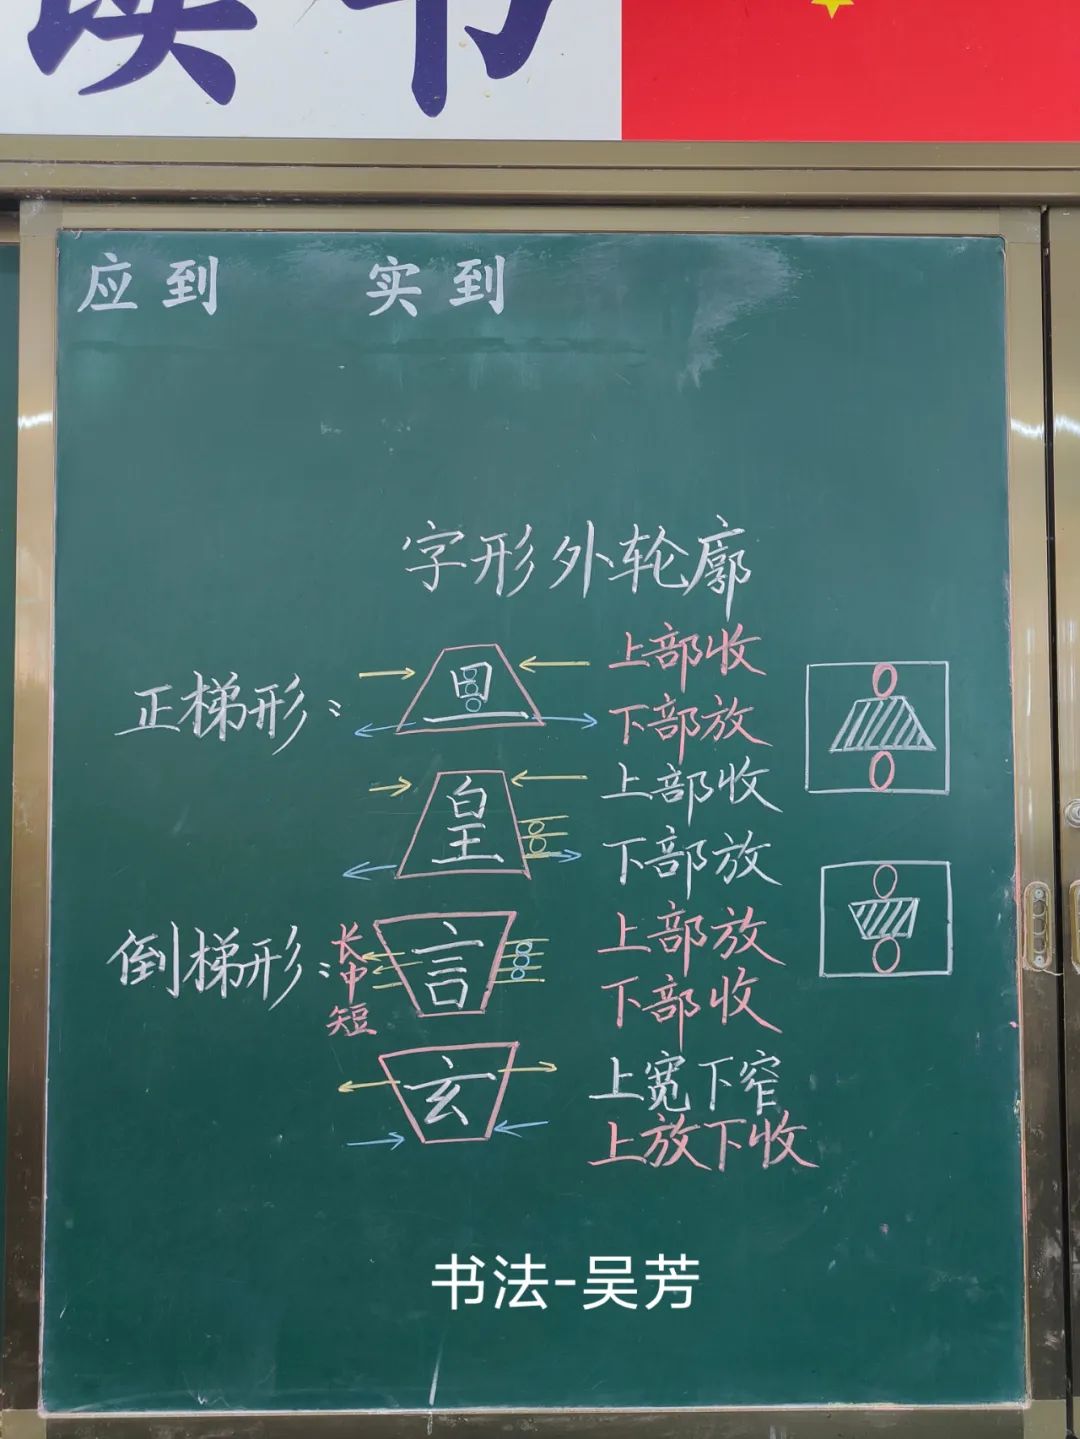 读书
应到 实到
字形外轮廓
正梯形: 旦 上部收
下部放
皇 上部收
下部放
倒梯形: 长中短 言 上部放
下部收
玄 上宽下窄
上放下收
书法-吴芳